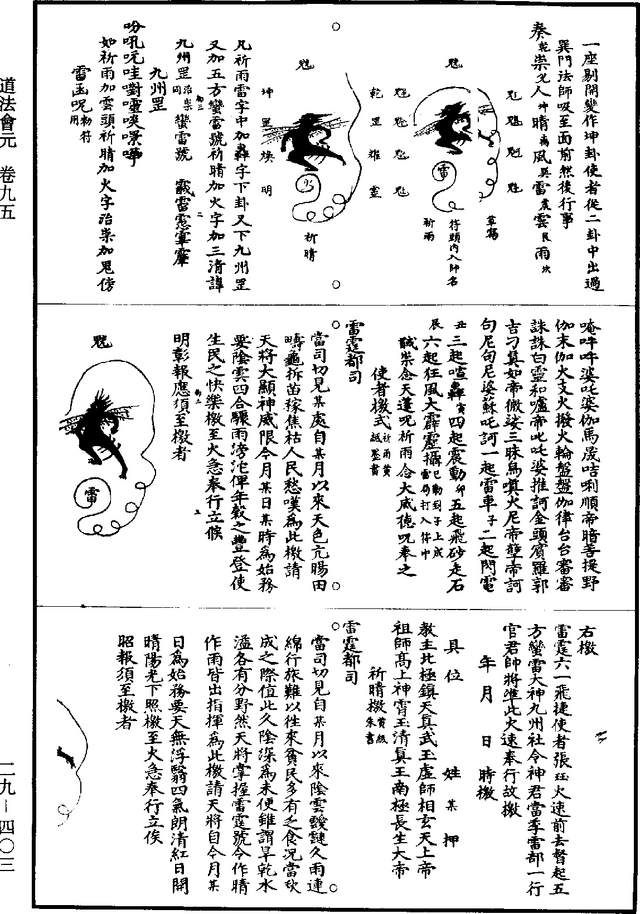 道法會元 卷九五
一座剔開變作坤卦使者從二卦中出過
巽門法師吸至面前然後行事
奏乾祟艮人坤晴离風巽雷震雲艮雨坎
魒 魒 魒 魒
草稿
符頭內入師名
祈雨
雷
乾罡雄靈
祈晴
坤罡煥明
凡祈雨雷字中加轟字下卦又下九州罡
又加五方蠻雷號祈晴加火字加三清諱
九州罡治祟同蠻雷號
九州罡
如祈雨加雲頭祈晴加火字治祟加鬼傍
雷函呪勑符用
伽末伽火支火撥火輪盤盤伽律台台審審
誅誅白靈和嚧帝叱吒婆推訶金頭賓羅郭
句尼句尼婆蘇吒訶一起雷車子二起閃電
丑三起喧轟寅四起震動卯五起飛砂走石
辰六起狂風大霹靂攝
誦祟念天蓬呪祈雨念大威德呪奉之
使者檄式祈雨黃紙墨書
雷霆都司
當司切見某處自某月以來天色亢暘田
疇龜拆苗稼焦枯人民愁嘆為此檄請
天將大顯神威限今月某日某時為始務
要陰雲四合驟雨滂沱俾年穀之豐登使
生民之快樂檄至火急奉行立候
明彰報應須至檄者
雷
右檄
雷霆六一飛捷使者張珏火速前去督起五
方蠻雷大神九州社令神君當季雷部一行
官君師將准此火速奉行故檄
年 月 日 時檄
具位 姓 某 押
教主北極鎮天真武王虛師相玄天上帝
祖師高上神霄玉清真王南極長生大帝
祈晴檄黃紙朱書
雷霆都司
當司切見自某月以來陰雲靉靆久雨連
綿行旅難以往來貧民多有乏食况當秋
成之際值此久陰深為未便雖謂旱乾水
溢各有分野然天將掌握雷霆號令作晴
作雨皆出指揮為此檄請天將自今月某
日為始務要天無浮翳四氣朗清紅日開
晴陽光下照檄至火急奉行立俟
昭報須至檄者
二九－四〇三